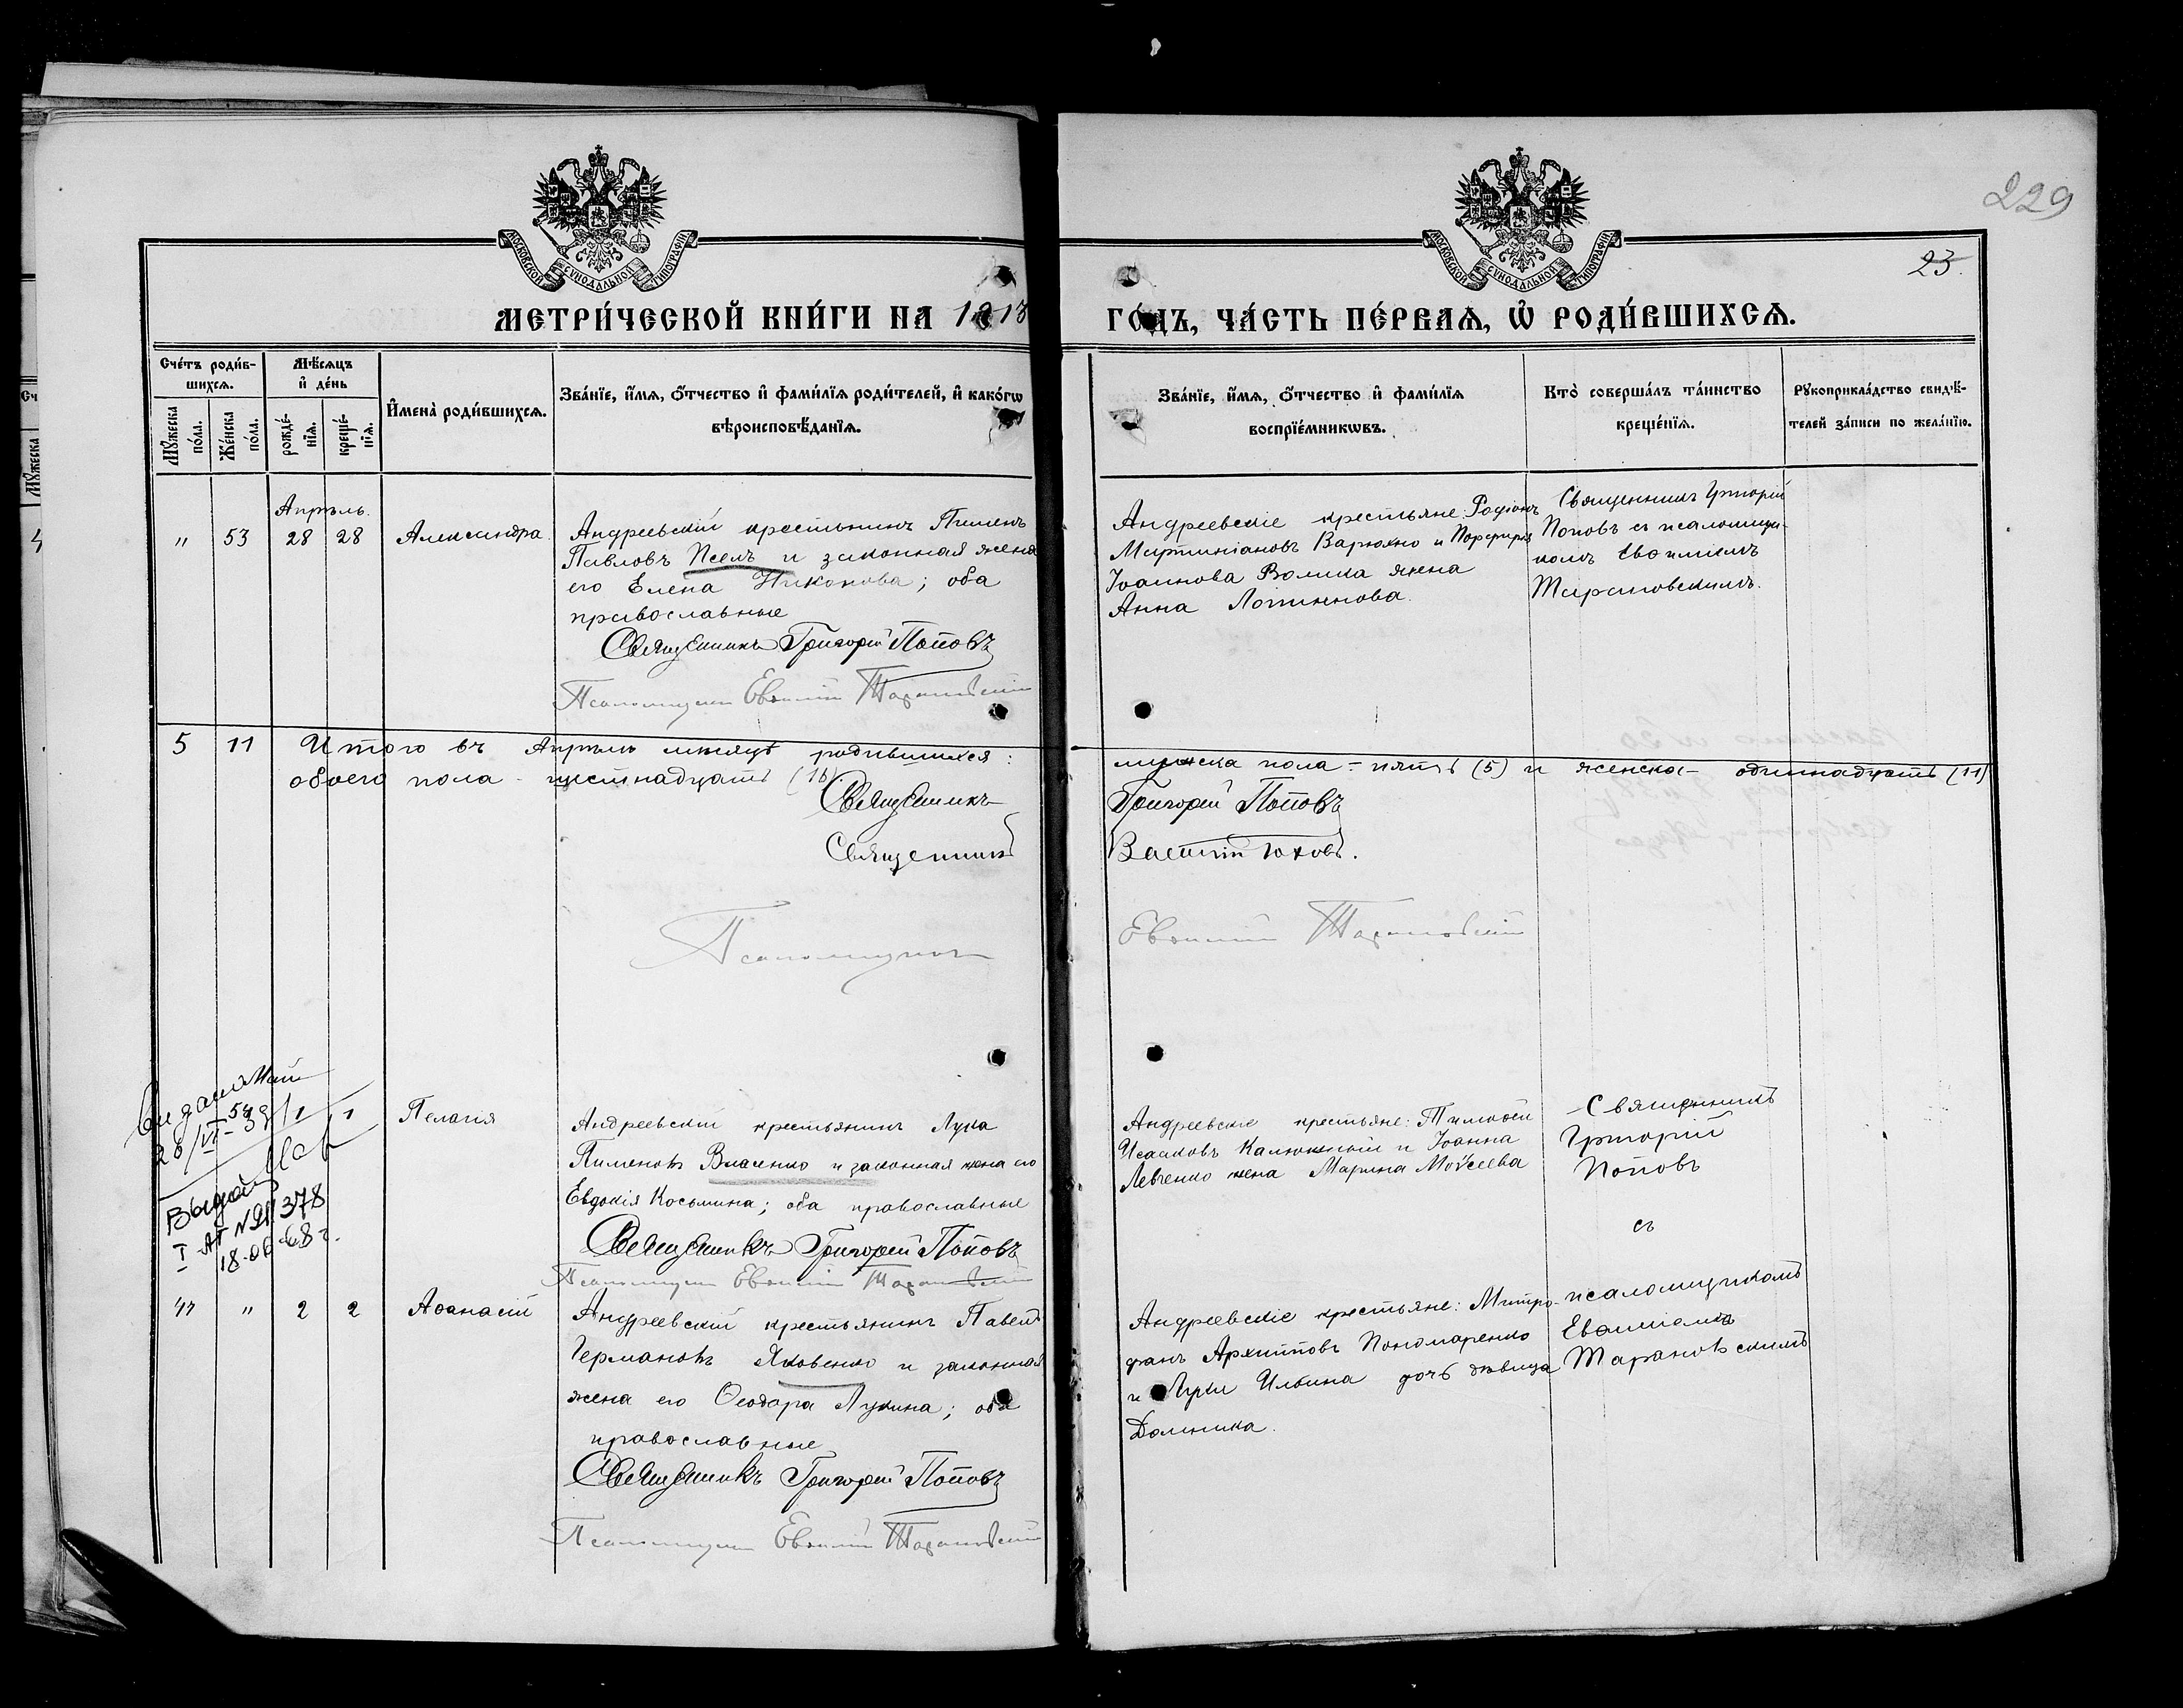 229
23.
МОСКОВСКОЙ СѴНОДАЛЬНОЙ ТИПОГРАФІИ
МОСКОВСКОЙ СѴНОДАЛЬНОЙ ТИПОГРАФІИ
МЕТРИ́ЧЕСКОЙ КНИ́ГИ НА 1913 ГО́ДЪ, ЧА́СТЬ ПЕ́РВАѦ, Ѡ҆ РОДИ́ВШИХСѦ.
Сче́тъ роди́в-
шихсѧ.
Мꙋ́жеска
по́ла.
Же́нска
по́ла.
Мѣ́сѧцъ
и҆ де́нь
рожде́-
нїѧ.
креще́-
нїѧ.
И҆мена̀ роди́вшихсѧ.
Зва́нїе, и҆́мѧ, ѻ҆́тчество и҆ фами́лїѧ роди́телей, и҆ како́гѡ
вѣроисповѣ́данїѧ.
Зва́нїе, и҆́мѧ, ѻ҆́тчество и҆ фами́лїѧ
воспрїе́мникѡвъ.
Кто̀ соверша́лъ та́инство
креще́нїѧ.
Рꙋкоприкла́дство свидѣ́-
телей за́писи по жела́нїю.
Апрѣль.
" 53 28 28 Александра.
Андреевскій крестьянинъ Пименъ
Павловъ Псёлъ и законная жена
его Елена Никонова; оба
православные
Священникъ Григорій Поповъ
Псаломщикъ Евѳимій Тарановскій
Андреевскіе крестьяне: Родіонъ
Мартиніановъ Варюхно и Порфирія
Іоаннова Волика жена
Анна Логиннова.
Священникъ Григорій
Поповъ съ псаломщи-
комъ Евѳиміемъ
Тарановскимъ.
5 11 Итого въ Апрѣлѣ мѣсяцѣ родившихся: мужска пола - пять (5) и женска - одиннадцать (11)
обоего пола - шестнадцать (16)
Священникъ Григорій Поповъ
Священникъ Василій
Псаломщикъ Евѳимій Тарановскій
Май
54 1 1 Пелагія
26/VI-39
I-АГ № 378
18.06.68 г.
Андреевскій крестьянинъ Лука
Пименовъ Власенко и законная жена его
Евдокія Косьмина; оба православные
Священникъ Григорій Поповъ
Псаломщикъ Евѳимій Тарановскій
Андреевскіе крестьяне: Тимоѳей
Исааковъ Калюжный и Іоанна
Левченко жена Марина Моѵсеева
Священникъ
Григорій
Поповъ
съ
псаломщикомъ
Евѳиміемъ
Тарановскимъ
47 " 2 2 Аѳанасій
Андреевскій крестьянинъ Павелъ
Германовъ Яковенко и законная
жена его Ѳеодора Лукина; оба
православные
Священникъ Григорій Поповъ
Псаломщикъ Евѳимій Тарановскій
Андреевскіе крестьяне: Митро-
фанъ Архипповъ Пономаренко
и Луки Ильина дочь дѣвица
Домника.